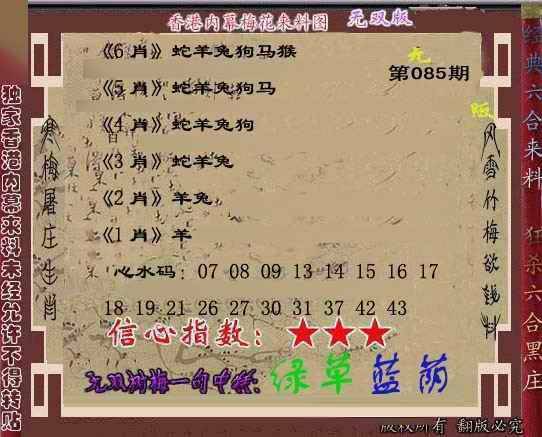 香港内幕梅花来料图 无双版
《6 肖》蛇羊兔狗马猴
无
第085期
《5 肖》蛇羊兔狗马
版
《4 肖》蛇羊兔狗
《3 肖》蛇羊兔
《2 肖》羊兔
《1 肖》羊
心水码: 07 08 09 13 14 15 16 17
18 19 21 26 27 30 31 37 42 43
信心指数: ★★★
无双踏梅一句中特: 绿草蓝荫
版权所有 翻版必究
独家香港内幕来料未经允许不得转贴
寒梅屠庄生肖
风雪竹梅欲钱料
经典六合来料
狂杀六合黑庄